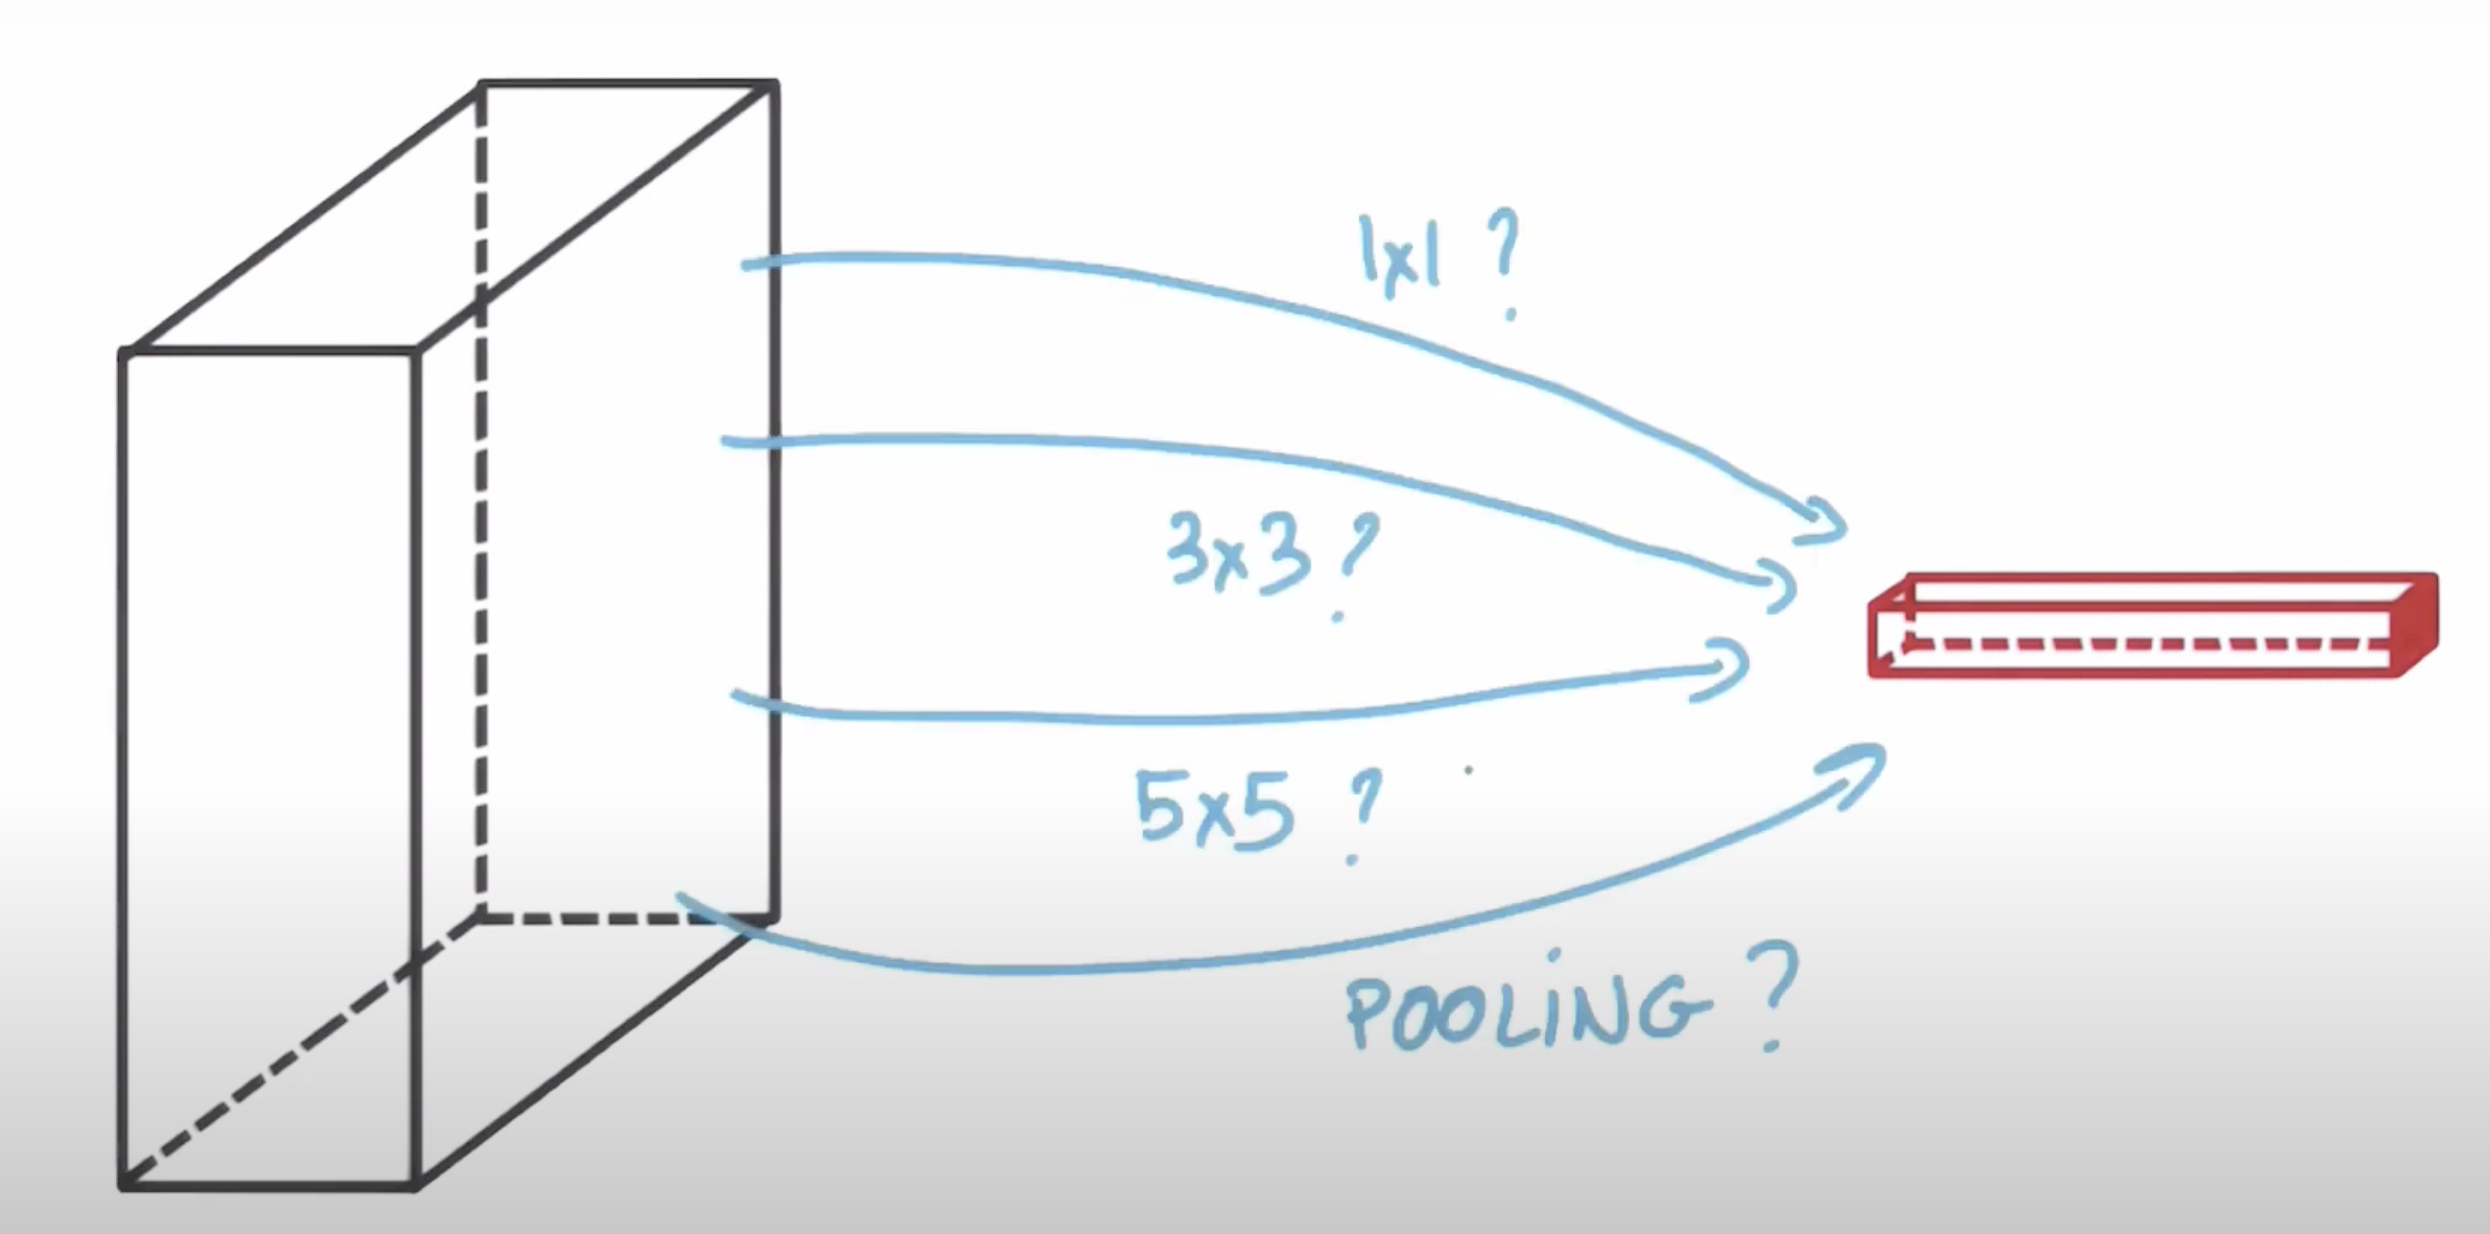 1x1 ?
3x3 ?
5x5 ?
POOLiNG ?